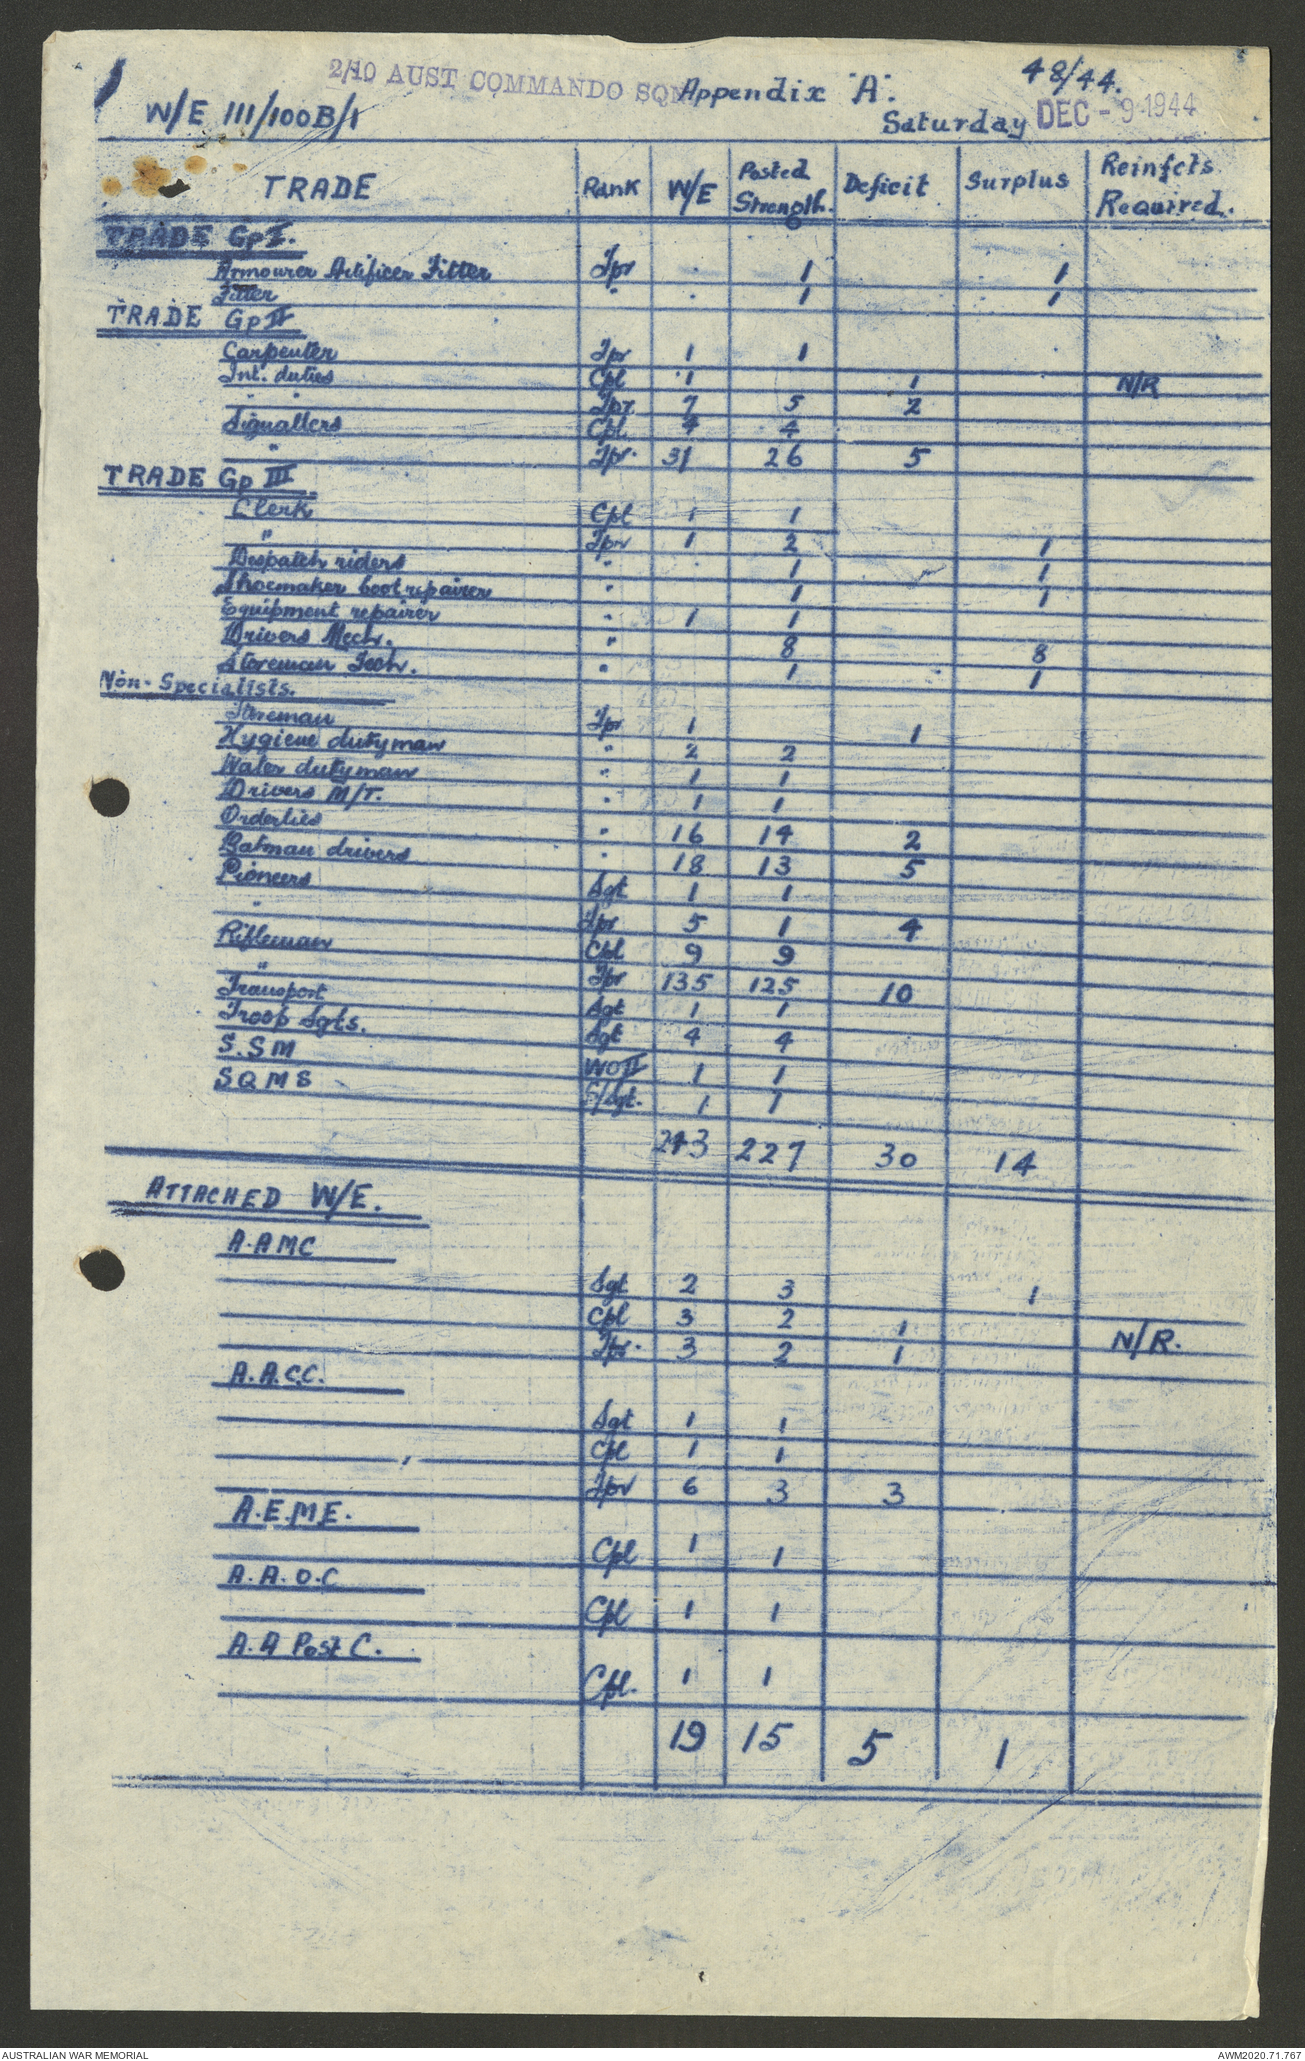 2/10 AUST COMMANDO SQN Appendix "A". 48/44.
W/E III/100B/1 Saturday DEC - 9 1944
TRADE Rank W/E Posted Strength. Deficit Surplus Reinfcts Required.
TRADE Gp I.
Armourer Artificer Fitter Tpr 1 1
Fitter " 1 1
TRADE Gp II
Carpenter Tpr 1 1
Int. duties Cpl 1 1 N/R
" " Tpr 7 5 2
Signallers Cpl 4 4
" Tpr. 31 26 5
TRADE Gp III
Clerk Cpl 1 1
" Tpr 1 2 1
Despatch riders " 1 1
Shoemaker boot repairer " 1 1
Equipment repairer " 1 1
Drivers Mech. " 8 8
Storeman Tech. " 1 1
Non-Specialists.
Storeman Tpr 1 1
Hygiene dutyman " 2 2
Water dutyman " 1 1
Drivers M/T. " 1 1
Orderlies " 16 14 2
Batman drivers " 18 13 5
Pioneers Sgt 1 1
" Tpr 5 1 4
Rifleman Cpl 9 9
" Tpr 135 125 10
Transport Sgt 1 1
Troop Sgts. Sgt 4 4
S.S M WO II 1 1
S Q M S S/Sgt. 1 1
243 227 30 14
ATTACHED W/E.
A.A MC
Sgt 2 3 1
Cpl 3 2 1
Tpr. 3 2 1 N/R.
A.A.C.C.
Sgt 1 1
Cpl 1 1
Tpr 6 3 3
A.E.M.E.
Cpl 1 1
A.A.O.C
Cpl 1 1
A.A Post C.
Cpl. 1 1
19 15 5 1
AUSTRALIAN WAR MEMORIAL AWM2020.71.767